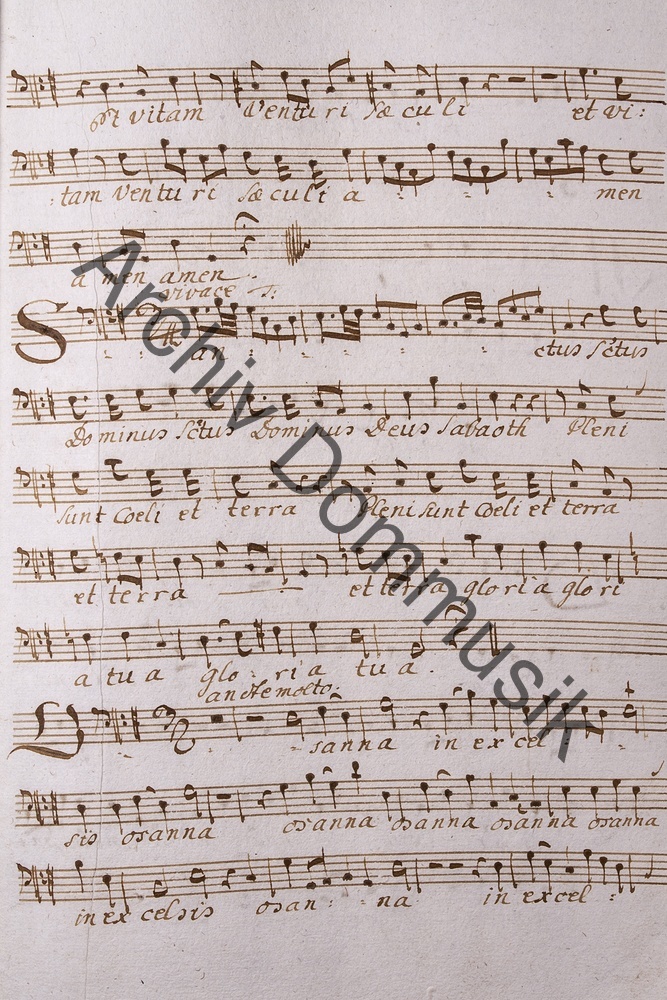 et vitam Venturi sæculi et vi:
:tam Venturi sæculi a - - - men
a men amen
vivace T:
San - - - - ctus Sctus
Dominus Sctus Dominus Deus sabaoth Pleni
sunt Coeli et terra Pleni sunt Coeli et terra
et terra et terra gloria glori
a tua glo: ria tua.
andte molto:
O - sanna in excel -
sis osanna osanna osanna osanna osanna
in excelsis osan: - na in excel:
Archiv Dommusik